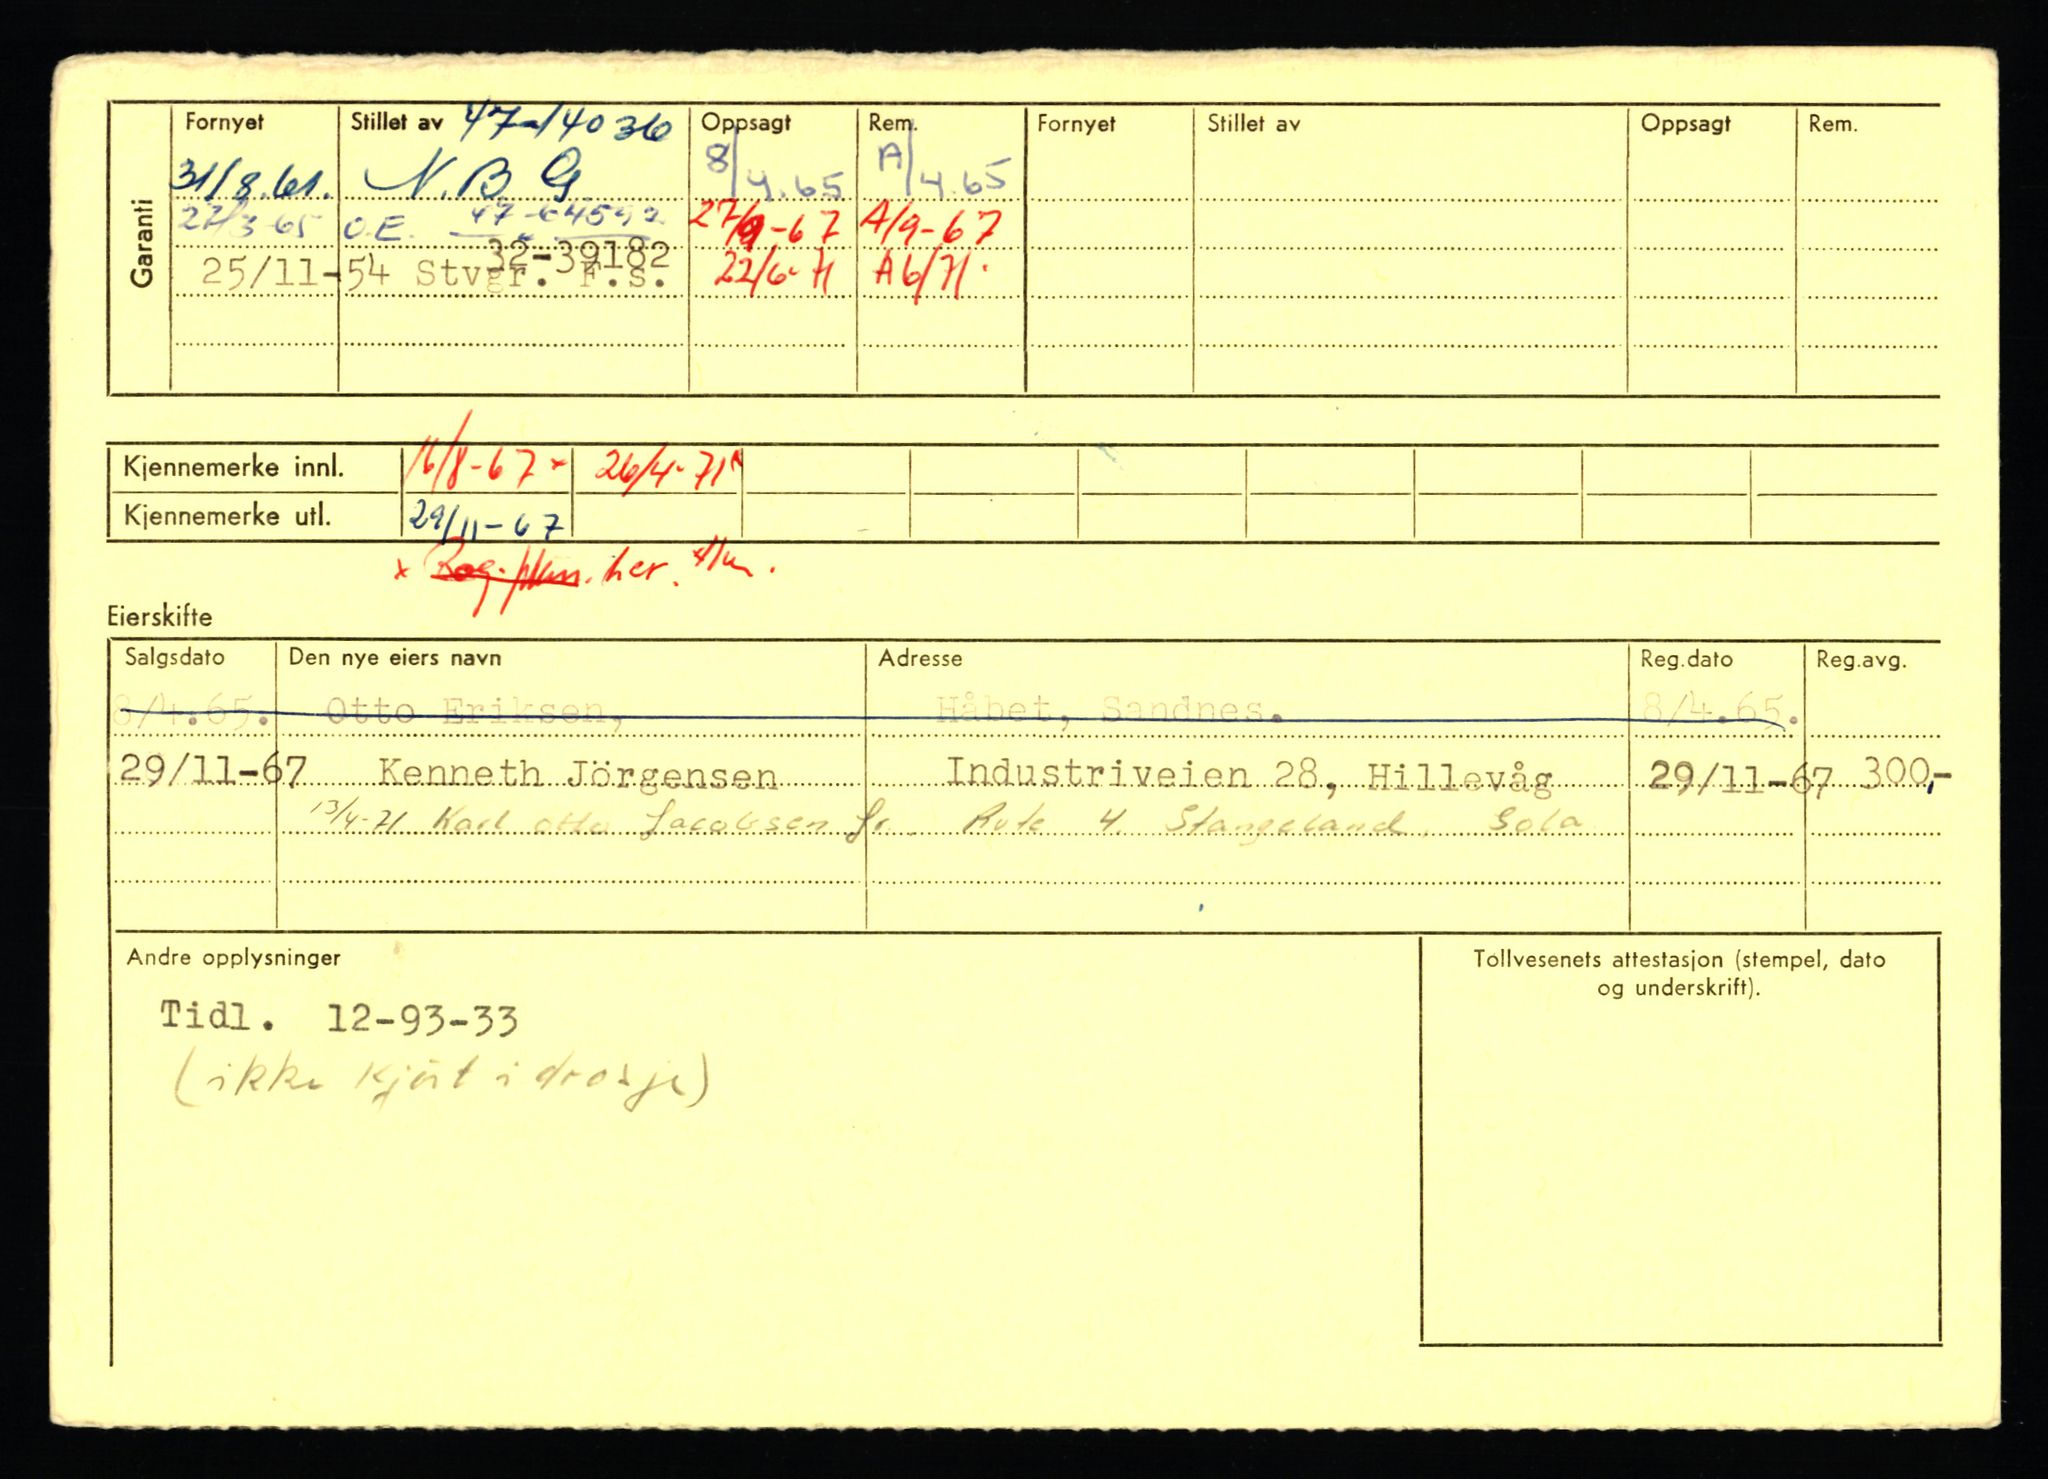 Garanti
Fornyet Stillet av 47-14036 Oppsagt Rem. Fornyet Stillet av Oppsagt Rem.
31/8.61. N.B G 8/4.65 A/4.65
27/3 65 O.E. 27/9-67 A/9-67
32-39182
25/11-54 Stvgr. F.s. 22/6-71 A6/71.
Kjennemerke innl. 16/8-67 x 26/4-71
Kjennemerke utl. 29/11-67
x her.
Eierskifte
Salgsdato Den nye eiers navn Adresse Reg.dato Reg.avg.
8/4.65. Otto Eriksen, Håbet, Sandnes. 8/4.65.
29/11-67 Kenneth Jörgensen Industriveien 28, Hillevåg 29/11-67 300,-
13/4-71 Karl Otto Jacobsen Jr. Rute 4. Stangeland, Sola
Andre opplysninger
Tollvesenets attestasjon (stempel, dato
og underskrift).
Tidl. 12-93-33
(ikke kjört i drosje)